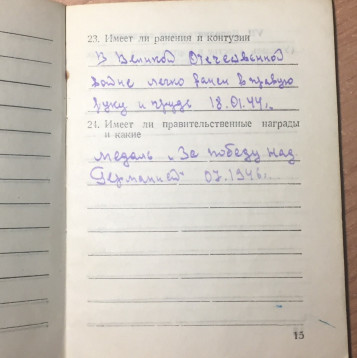 23. Имеет ли ранения и контузии
В Великой Отечественной
войне легко ранен в правую
руку и грудь 18.01.44г.
24. Имеет ли правительственные награды
и какие
медаль „За победу над
Германией" 07.1946г.
15